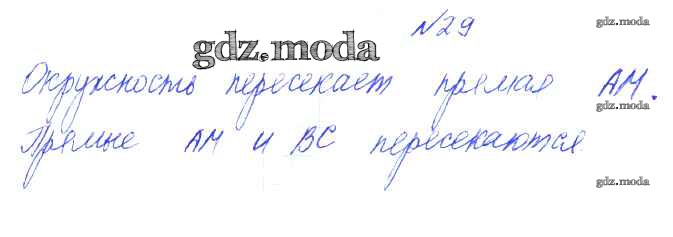 №29
gdz.moda
gdz.moda
Окружность пересекает прямая АМ.
gdz.moda
Прямые АМ и ВС пересекаются.
gdz.moda